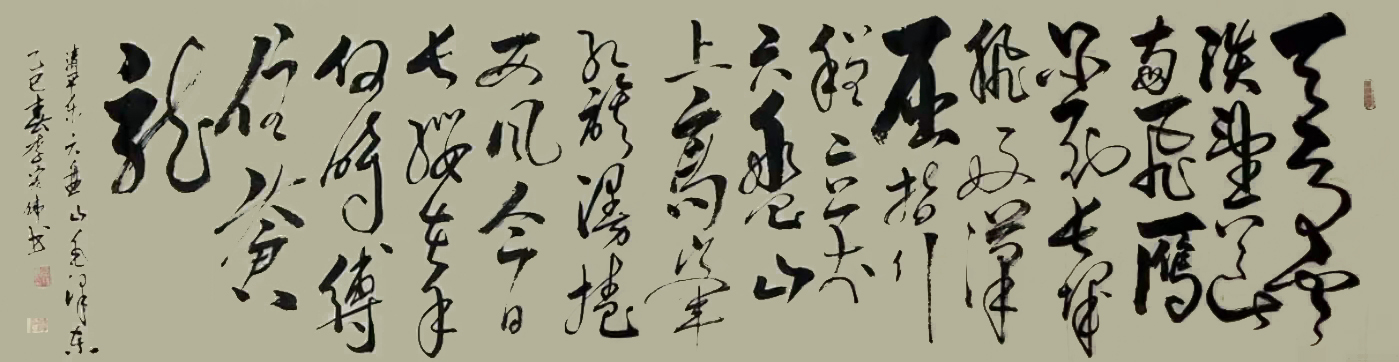 天高雲
淡望断
南飛雁
不到长城
非好漢
屈指行
程二万
六盘山
上高峯
红旗漫捲
西风今日
长缨在手
何時縛
住苍
龍
清平乐六盘山毛泽东
乙巳春李伟书